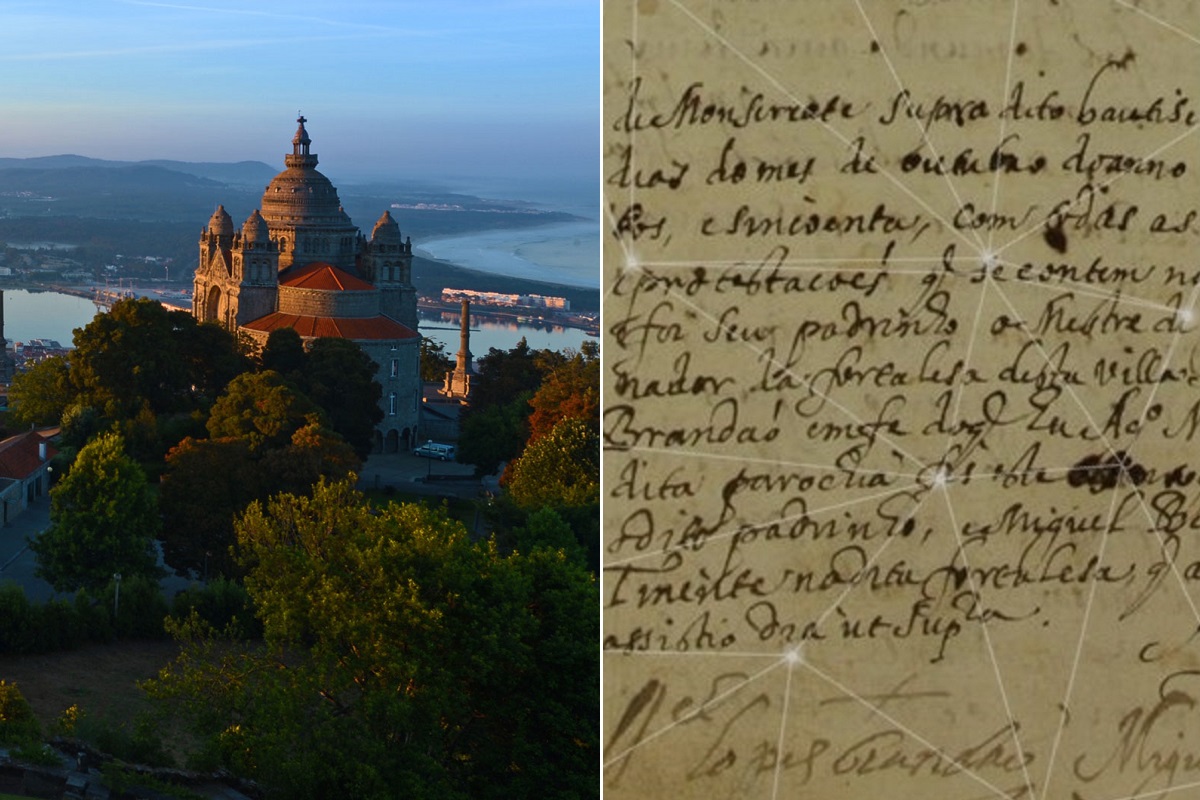 de Monserrate supra dito bautise
dias do mes de outubro do anno
tos, e sincoenta, com todas as
e protestacoés q̃ se contem n
q̃ foi seu padrinho o Mestre d
nador da fortalesa desta villa
Brandaó em fe do q̃ Eu
dita parochia
dito padrinho, e Miguel
Tinente na dita fortalesa, q̃
assistio dia ut supra.
Lopes Brandão Migu